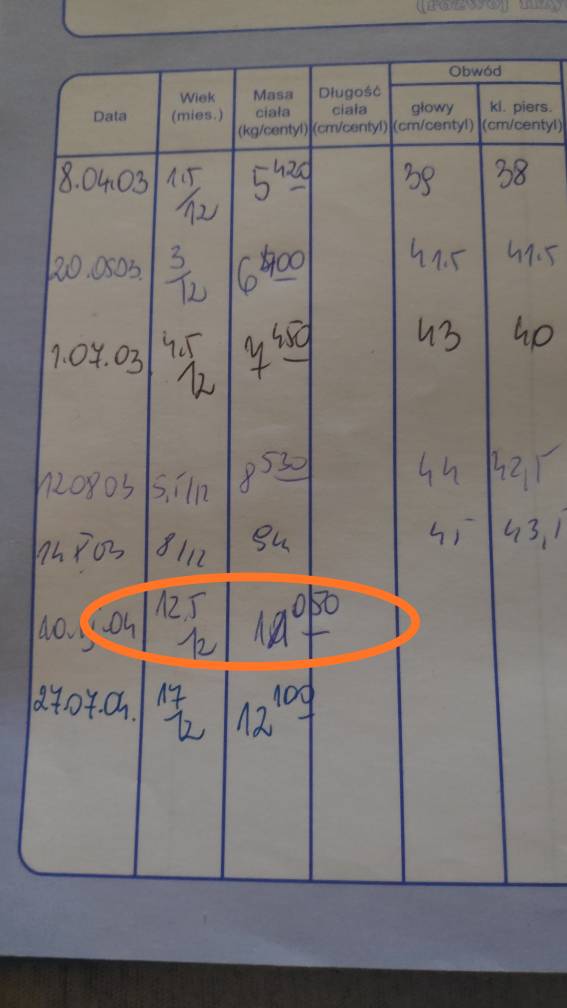 Obwód
Data Wiek (mies.) Masa ciała (kg/centyl) Długość ciała (cm/centyl) głowy (cm/centyl) kl. piers. (cm/centyl)
8.04.03 1.5/12 5420 39 38
20.0503. 3/12 41.5 41.5
1.07.03 4.5/12 7450 43 40
120803 5,5/12 8530 44 42,5
8/12 45 43,5
12.5/12
27.07.04. 17/12 12100